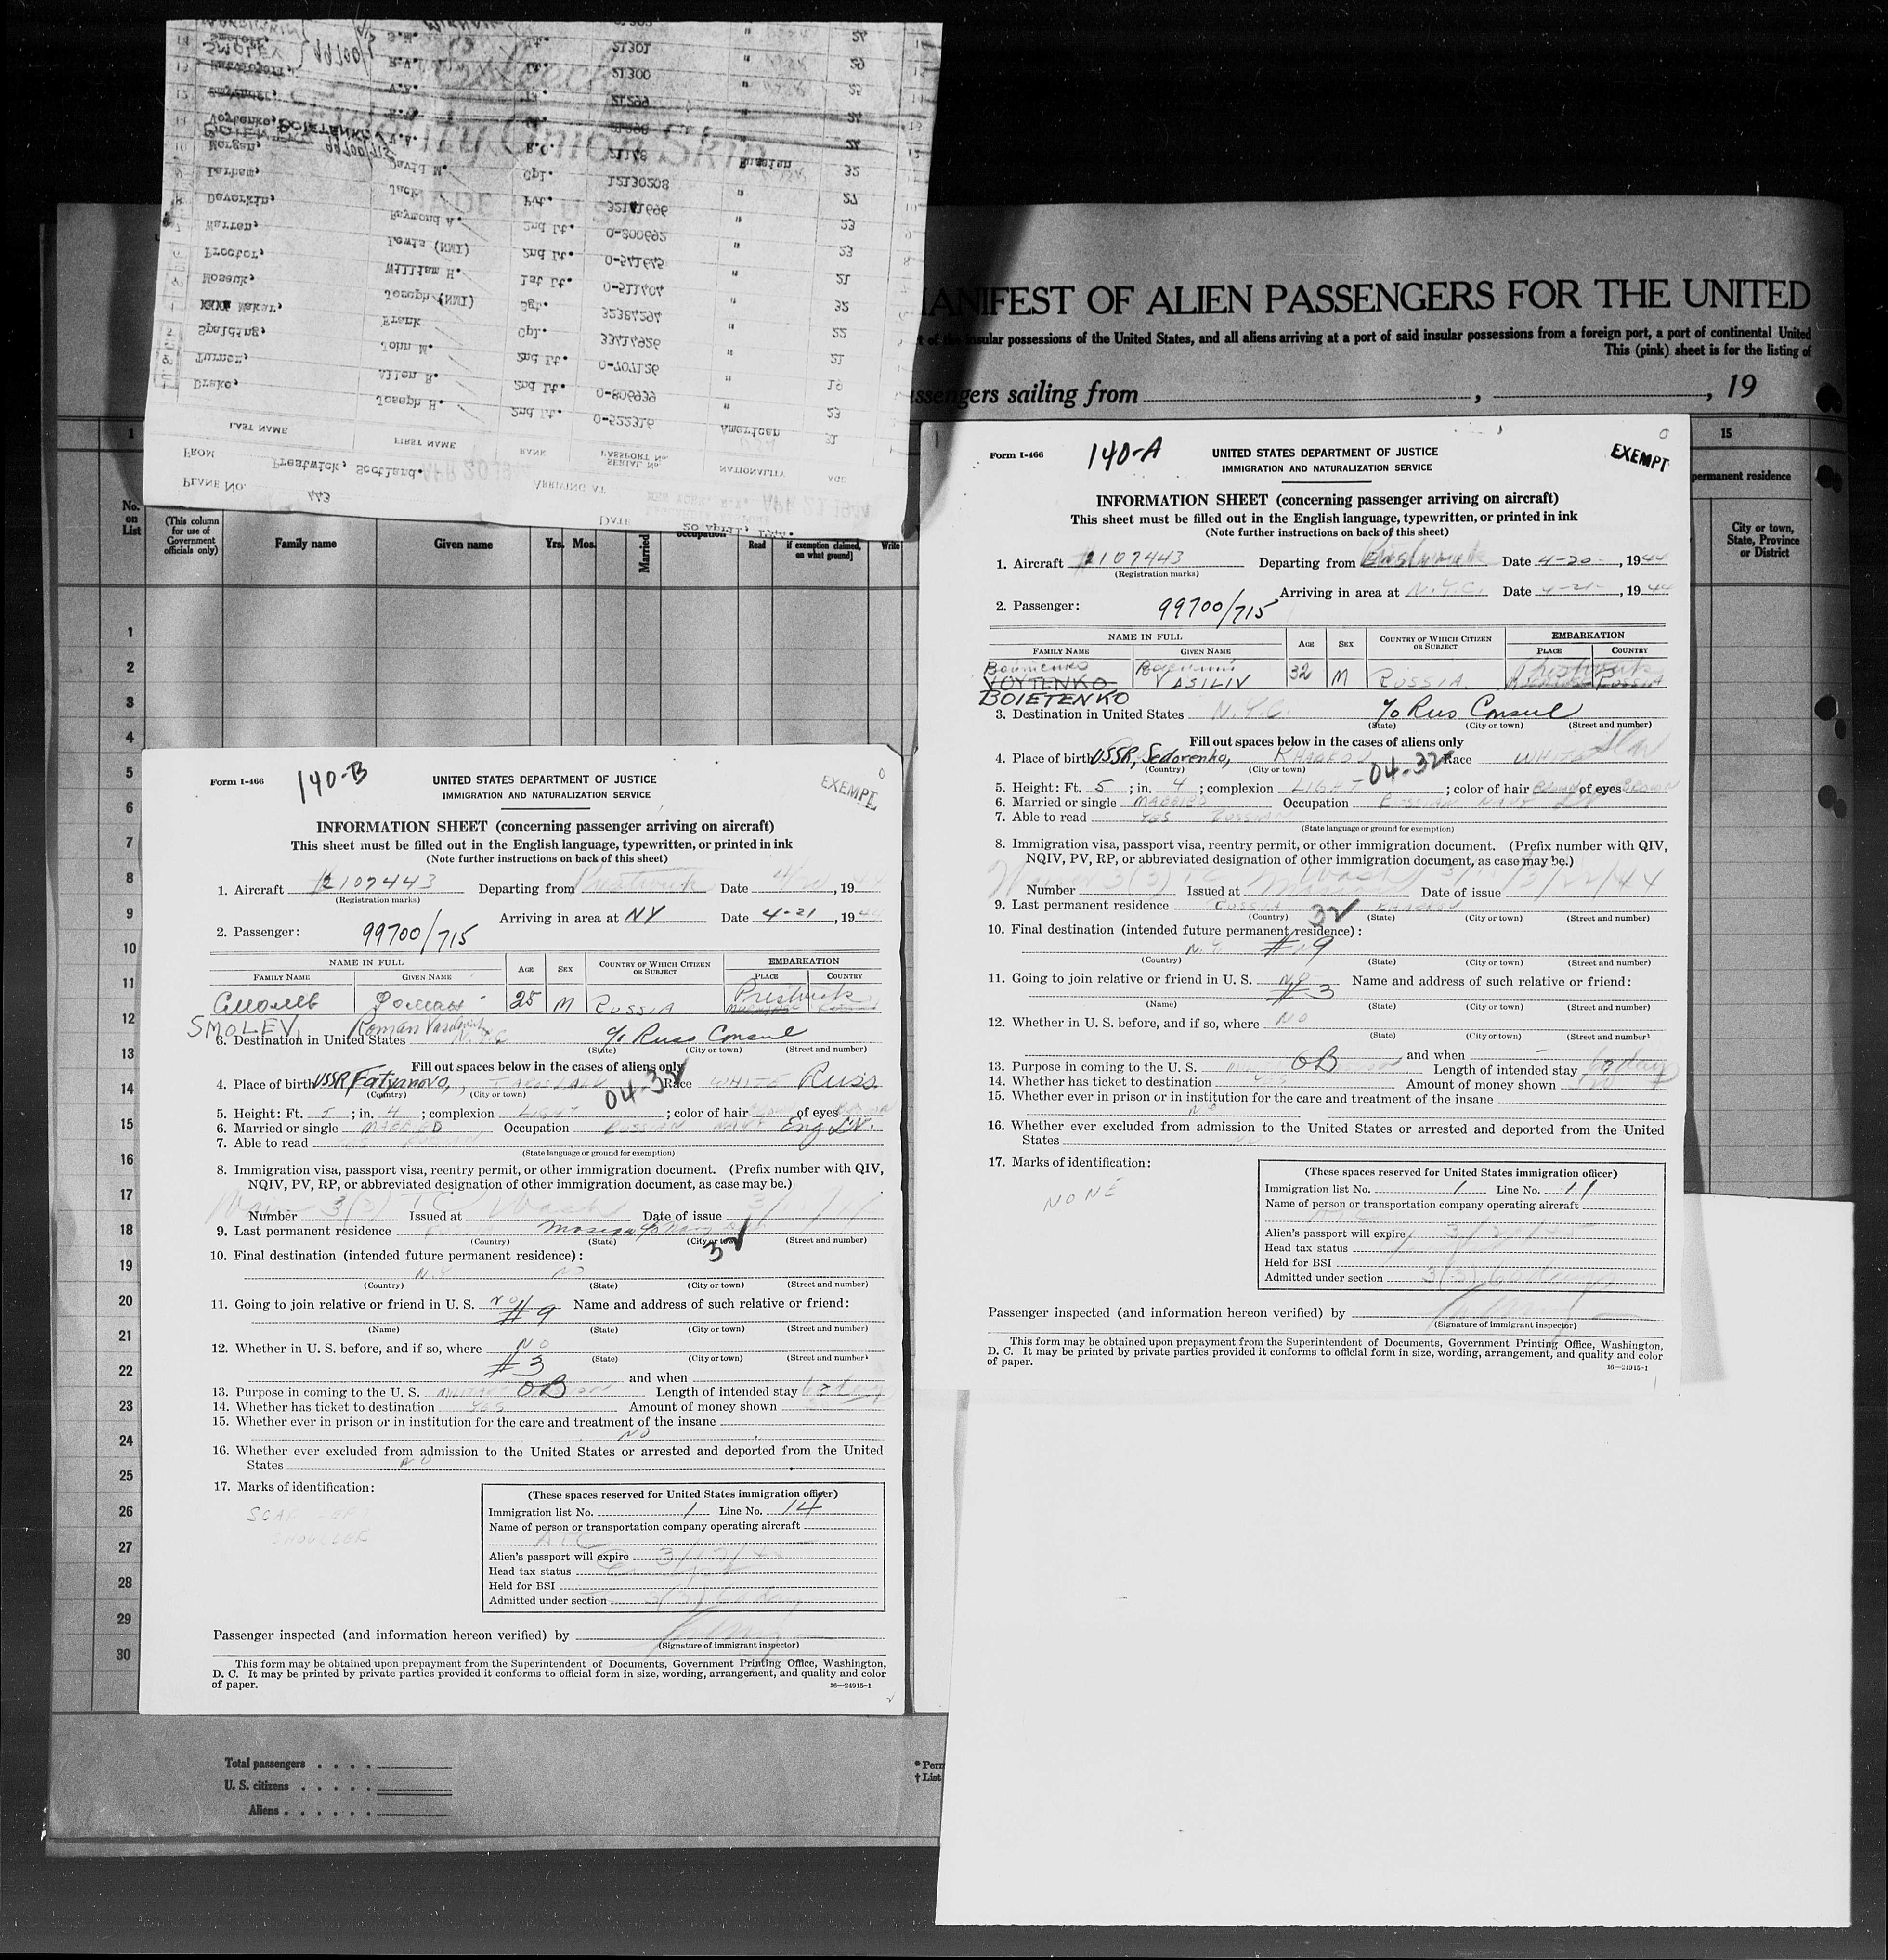 MANIFEST OF ALIEN PASSENGERS FOR THE UNITED
insular possessions of the United States, and all aliens arriving at a port of said insular possessions from a foreign port, a port of continental United
This (pink) sheet is for the listing of
passengers sailing from , , 19
1
15
permanent residence
No. on List
(This column for use of Government officials only)
Family name
Given name
Yrs. Mos.
Married
Read
if exemption claimed, on what ground]
Write
City or town, State, Province or District
1
2
3
4
5
6
7
8
9
10
11
12
13
14
15
16
17
18
19
20
21
22
23
24
25
26
27
28
29
30
Total passengers . . . .
U. S. citizens . . . . .
Aliens . . . . .
* Perm
† List
PLANE No. 443
DATE 20 April,
FROM Prestwick, Scotland.
ARRIVING AT
NEW YORK, N.Y. APR 21 1944
LAST NAME FIRST NAME RANK PASSPORT No. SERIAL No. NATIONALITY AGE
Drake, Joseph H. 2nd Lt. 0-522316 American 31
Turner, Allen B. 2nd Lt. 0-806939 " 23
Spalding, John M. 2nd Lt. 0-707126 " 19
Maker, Frank Cpl. 33414926 " 21
Mosauk, Joseph (NMI) Sgt. 32384294 " 22
Proctor, William H. 1st Lt. 0-511404 " 32
Warren, Lewis (NMI) 2nd Lt. 0-541645 " 21
Devorkin, Raymond A. 2nd Lt. 0-800692 " 23
Larham, Jack Pvt. 32141696 " 23
Morgan, David M. Cpl. 12130208 " 27
Voytenko, BOIETENKO V.A. 21178 Russian 32
99700/715
21299 "
21300 "
21301 "
SMOLEV
99700/
Form I-466
140-A
UNITED STATES DEPARTMENT OF JUSTICE
IMMIGRATION AND NATURALIZATION SERVICE
EXEMPT
INFORMATION SHEET (concerning passenger arriving on aircraft)
This sheet must be filled out in the English language, typewritten, or printed in ink
(Note further instructions on back of this sheet)
1. Aircraft 2107443 Departing from Date 4-20-, 1944
(Registration marks)
Arriving in area at N.Y.C. Date 4-21-, 1944
2. Passenger: 99700/715
NAME IN FULL AGE SEX COUNTRY OF WHICH CITIZEN OR SUBJECT EMBARKATION
FAMILY NAME GIVEN NAME PLACE COUNTRY
VOYTENKO VASILIV 32 M RUSSIA Prestwick RUSSIA
BOIETENKO
3. Destination in United States N.Y.C. % Rus Consul
(State) (City or town) (Street and number)
Fill out spaces below in the cases of aliens only
4. Place of birth USSR, Sedorenko, KHARKOV 04-32 Race WHITE Slav
(Country) (City or town)
5. Height: Ft. 5; in. 4; complexion LIGHT; color of hair of eyes
6. Married or single MARRIED Occupation RUSSIAN NAVY
7. Able to read YES RUSSIAN
(State language or ground for exemption)
8. Immigration visa, passport visa, reentry permit, or other immigration document. (Prefix number with QIV,
NQIV, PV, RP, or abbreviated designation of other immigration document, as case may be.)
Number Issued at Date of issue
9. Last permanent residence RUSSIA KHARKOV
(Country) 32 (State) (City or town) (Street and number)
10. Final destination (intended future permanent residence):
N.Y. #9
(Country) (State) (City or town) (Street and number)
11. Going to join relative or friend in U. S. NO Name and address of such relative or friend:
#3
(Name) (State) (City or town) (Street and number)
12. Whether in U. S. before, and if so, where NO
(State) (City or town) (Street and number)
and when -
13. Purpose in coming to the U. S. OB Length of intended stay 60 days
14. Whether has ticket to destination YES Amount of money shown
15. Whether ever in prison or in institution for the care and treatment of the insane
NO
16. Whether ever excluded from admission to the United States or arrested and deported from the United
States NO
17. Marks of identification:
NONE
(These spaces reserved for United States immigration officer)
Immigration list No. 1 Line No. 11
Name of person or transportation company operating aircraft
ATC
Alien's passport will expire
Head tax status
Held for BSI
Admitted under section 3(3) 60 days
Passenger inspected (and information hereon verified) by
(Signature of immigrant inspector)
This form may be obtained upon prepayment from the Superintendent of Documents, Government Printing Office, Washington,
D. C. It may be printed by private parties provided it conforms to official form in size, wording, arrangement, and quality and color
of paper.
16—24915-1
Form I-466
140-B
UNITED STATES DEPARTMENT OF JUSTICE
IMMIGRATION AND NATURALIZATION SERVICE
EXEMPT
INFORMATION SHEET (concerning passenger arriving on aircraft)
This sheet must be filled out in the English language, typewritten, or printed in ink
(Note further instructions on back of this sheet)
1. Aircraft 2107443 Departing from Prestwick Date , 19
(Registration marks)
Arriving in area at NY Date 4-21, 1944
2. Passenger: 99700/715
NAME IN FULL AGE SEX COUNTRY OF WHICH CITIZEN OR SUBJECT EMBARKATION
FAMILY NAME GIVEN NAME PLACE COUNTRY
Смолев Роман 25 M RUSSIA Prestwick
SMOLEV, Roman
3. Destination in United States N.Y.C % Russ Consul
(State) (City or town) (Street and number)
Fill out spaces below in the cases of aliens only
4. Place of birth USSR Fatyanovo, 04-32 Race WHITE Russ
(Country) (City or town)
5. Height: Ft. 5; in. 4; complexion LIGHT; color of hair of eyes
6. Married or single MARRIED Occupation RUSSIAN NAVY Eng Lt.
7. Able to read
(State language or ground for exemption)
8. Immigration visa, passport visa, reentry permit, or other immigration document. (Prefix number with QIV,
NQIV, PV, RP, or abbreviated designation of other immigration document, as case may be.)
Number Issued at Wash Date of issue
9. Last permanent residence
(Country) (State) (City or town) (Street and number)
32
10. Final destination (intended future permanent residence):
N.Y NO
(Country) (State) (City or town) (Street and number)
11. Going to join relative or friend in U. S. NO #9 Name and address of such relative or friend:
(Name) (State) (City or town) (Street and number)
12. Whether in U. S. before, and if so, where NO
#3 (State) (City or town) (Street and number)
and when
13. Purpose in coming to the U. S. OB Length of intended stay
14. Whether has ticket to destination YES Amount of money shown
15. Whether ever in prison or in institution for the care and treatment of the insane
NO
16. Whether ever excluded from admission to the United States or arrested and deported from the United
States NO
17. Marks of identification:
SCAR LEF
SHOULDER
(These spaces reserved for United States immigration officer)
Immigration list No. 1 Line No. 14
Name of person or transportation company operating aircraft
ATC
Alien's passport will expire
Head tax status
Held for BSI
Admitted under section 3(3) 60 days
Passenger inspected (and information hereon verified) by
(Signature of immigrant inspector)
This form may be obtained upon prepayment from the Superintendent of Documents, Government Printing Office, Washington,
D. C. It may be printed by private parties provided it conforms to official form in size, wording, arrangement, and quality and color
of paper.
16—24915-1